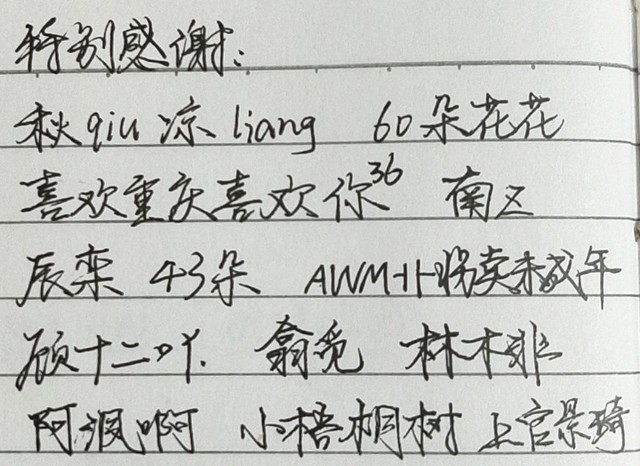 特别感谢:
秋qiu 凉 liang 60朵花花
喜欢重庆喜欢你36 南区
辰栾 43朵 AWM-H 未成年
顾十二吖. 翕觅 林木非
阿浿啊 小梧桐树 上官景琦